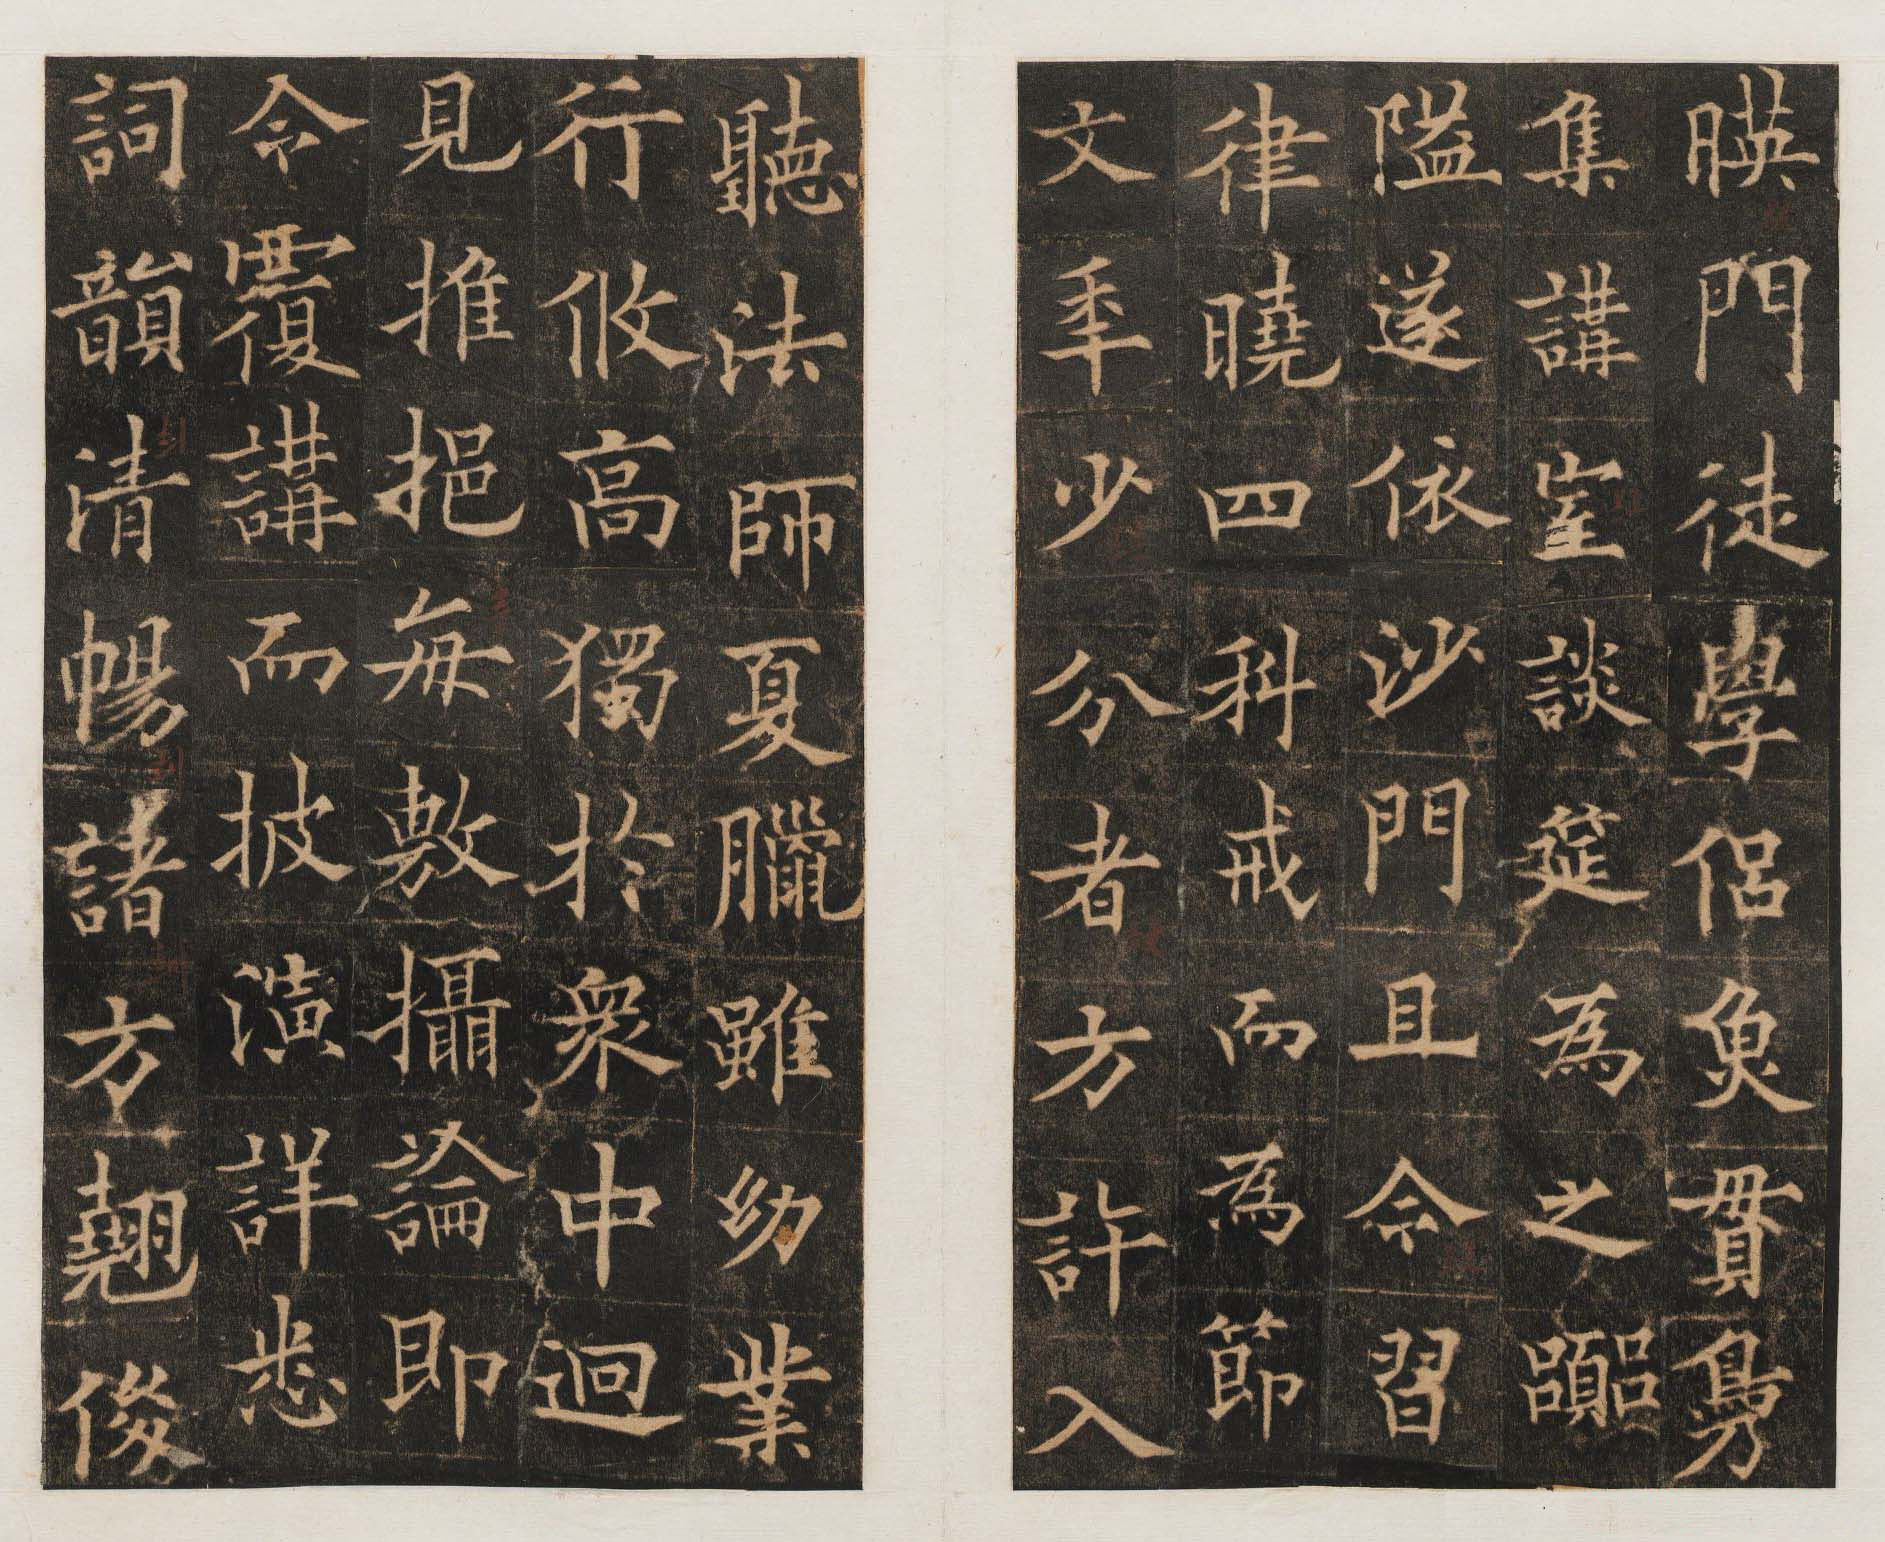 暎門徒學侶魚貫鳧
集講室談筵為之嚻
隘遂依沙門且令習
律曉四科戒而為節
文年少分者方許入
聽法師夏臘雖幼業
行攸高獨於衆中迥
見推挹每敷攝論即
令覆講而披演詳悉
詞韻清暢諸方翹俊